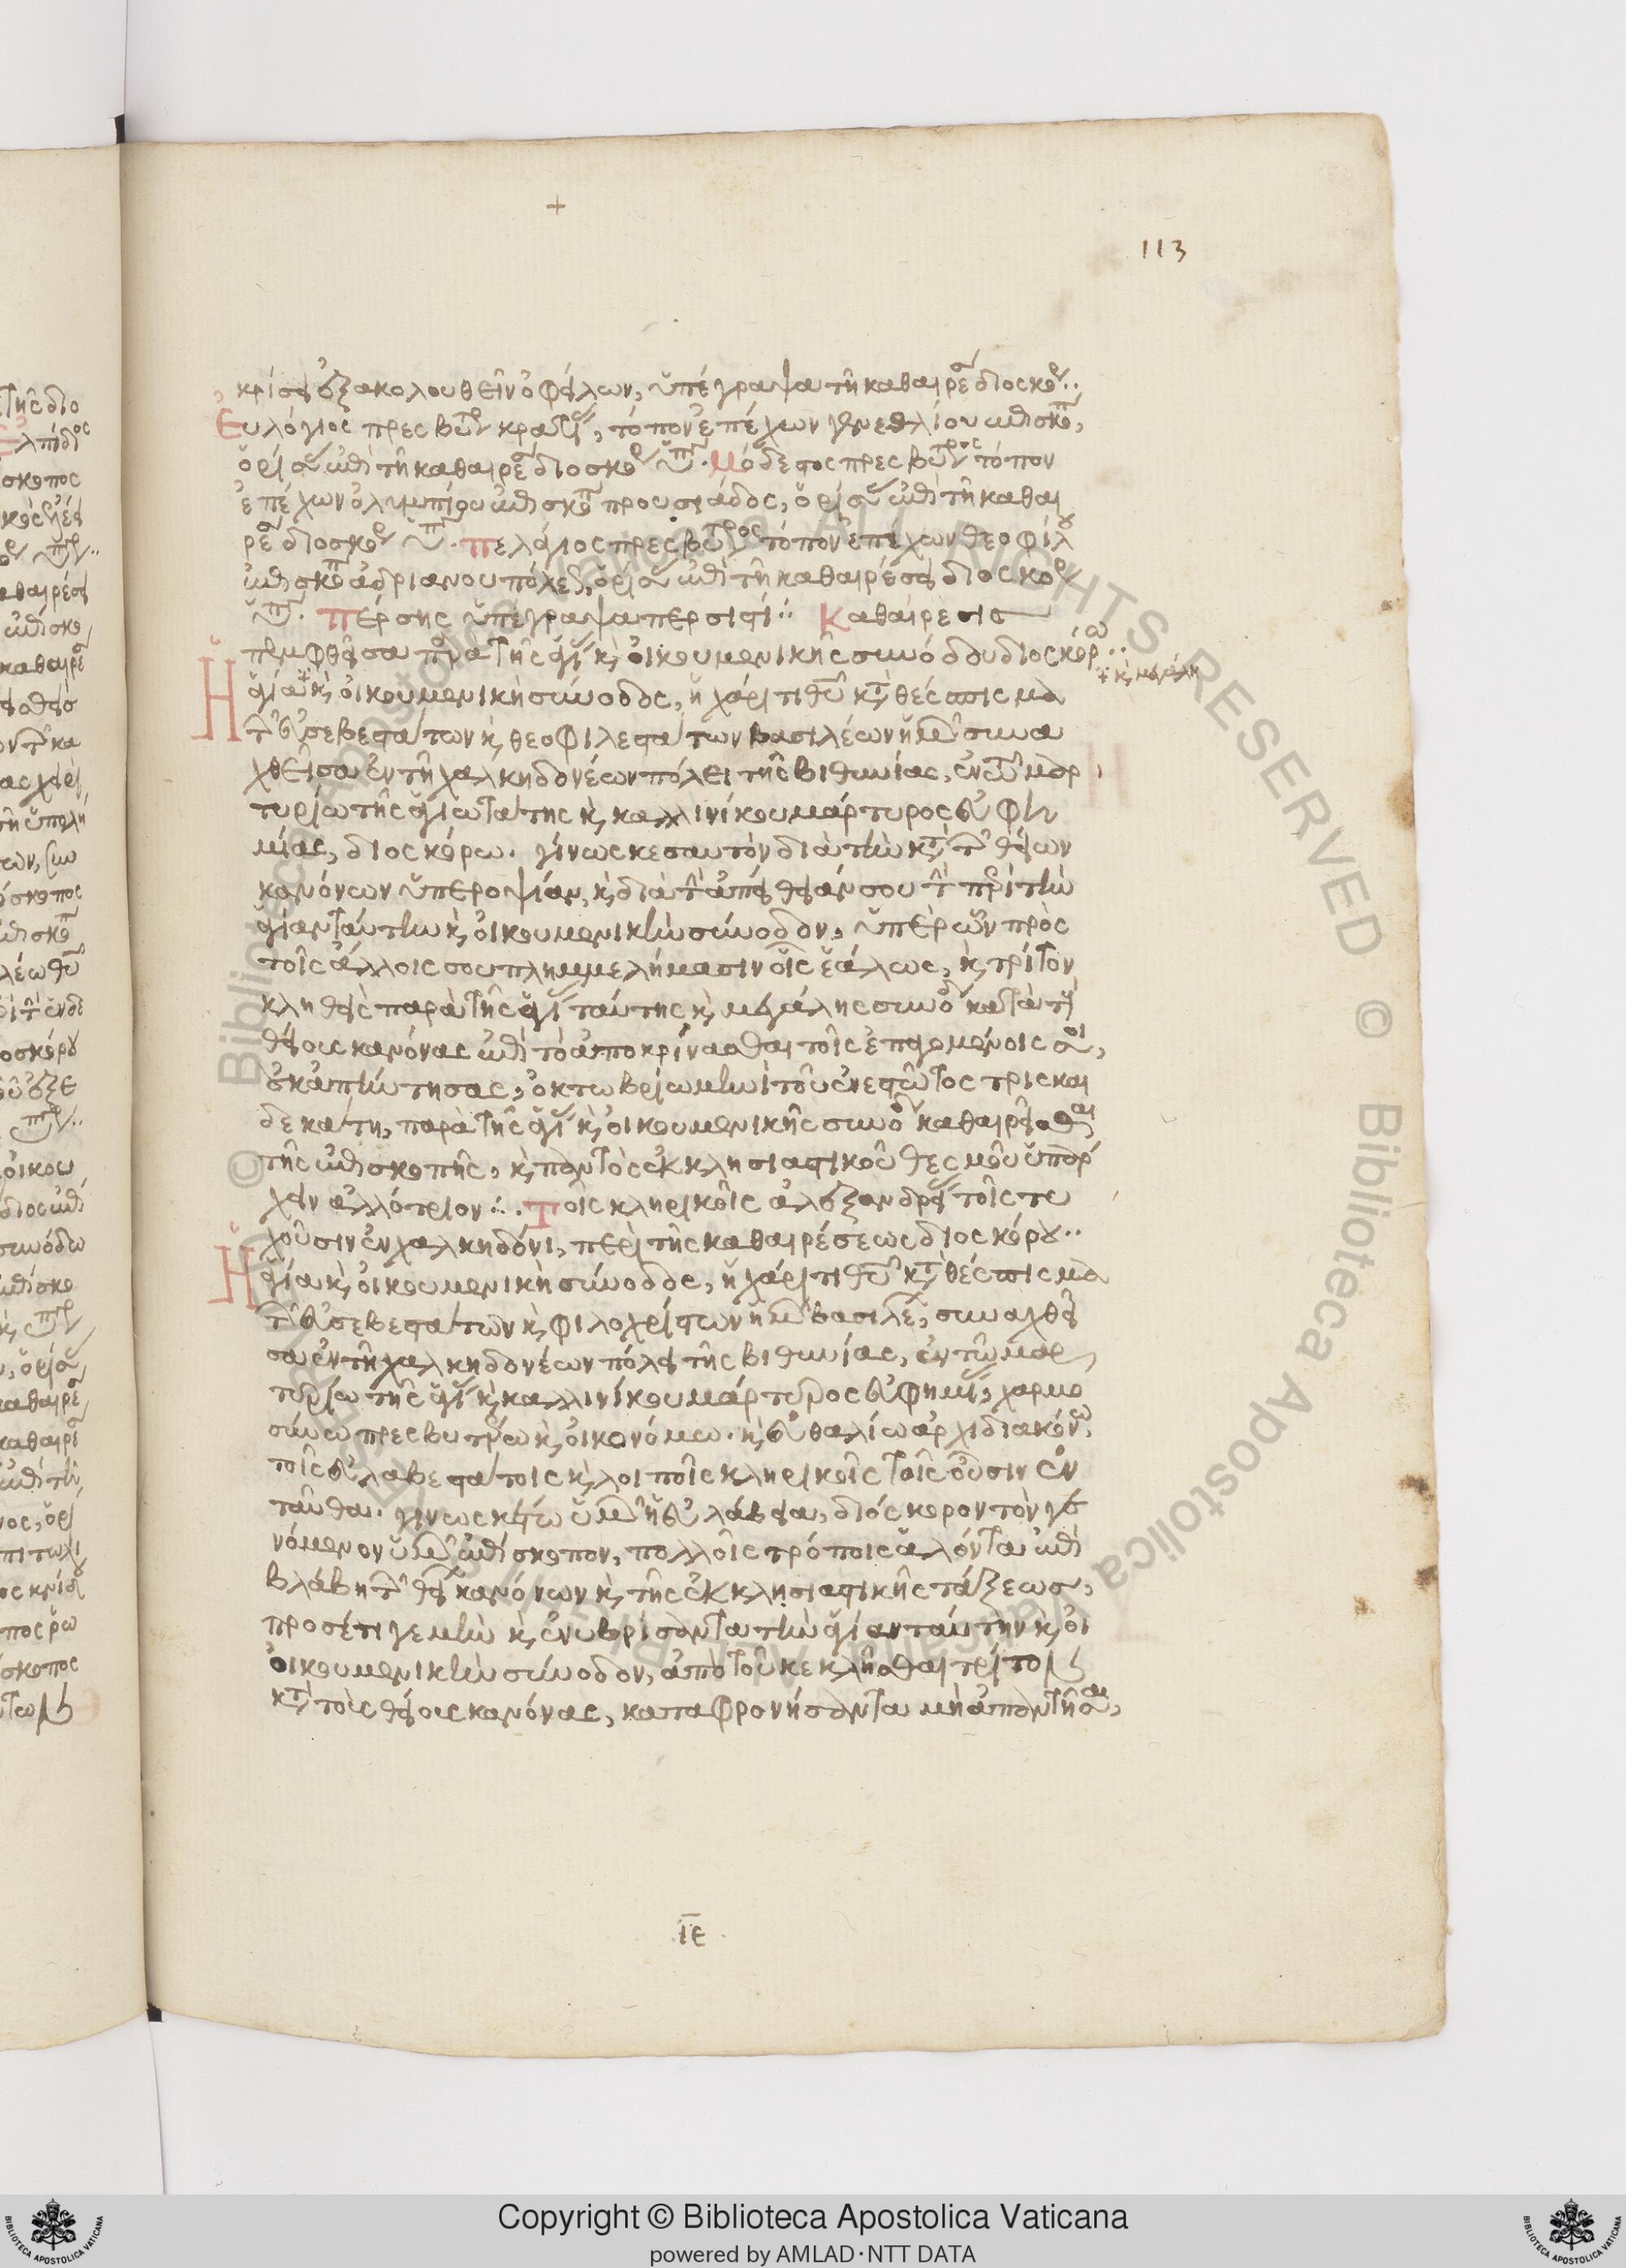 113
κρίσει ἐξακολουθεῖν ὀφείλων, ὑπέγραψα τῆ καθαιρέσ διοσκόρ··
Ευλόγιος πρεσβύτ κρατεί, τόπον ἐπέχων γενεθλίου ἐπισκόπ,
ὁρίσ ἐπὶ τῆ καθαιρέσ διοσκόρ ὑπ. Μόδεστος πρεσβύτρος τόπον
ἐπέχων ὀλυμπίου ἐπισκόπ προυσιάδος, ὁρίσ ἐπὶ τῆ καθαι
ρέσ διοσκόρ ὑπ. Πελάγιος πρεσβύτρος τόπον ἐπέχων θεοφίλου
ἐπισκόπ ἀδριανουπόλεως, ὁρίσ ἐπὶ τῆ καθαιρέσει διοσκόρ
ὑπ. Πέρσης ὑπέγραψα περσιστί·: Καθαίρεσις
πεμφθεῖσα παρὰ τῆς ἁγί κ οἰκουμενικῆς συνόδου διοσκόρω··
Ἡ ἁγία κ οἰκουμενικὴ σύνοδος, ἡ χάριτι θῦ κτ θέσπισμα
+ κ μεγάλη
τ εὐσεβεστάτων κ θεοφιλεστάτων βασιλέων ἡμ συνα
χθεῖσα ἐν τῆ χαλκηδονέων πόλει τῆς βιθυνίας, ἐν τῶ μαρ
τυρίω τῆς ἁγιωτάτης κ καλλινίκου μάρτυρος εὐφη
μίας, διοσκόρω. γίνωσκε σαυτὸν διὰ τὴν κτ τ θείων
κανόνων ὑπεροψίαν, κ διὰ τ ἀπείθειάν σου τ περὶ τὴν
ἁγίαν ταύτην κ οἰκουμενικὴν σύνοδον, ὑπὲρ ὧν πρὸς
τοῖς ἄλλοις σου πλημμελήμασιν οἷς ἑάλως, κ τρίτον
κληθεὶς παρὰ τῆς ἁγί ταύτης κ μεγάλης συνόδ κατὰ τοὺς
θείους κανόνας ἐπὶ τὸ ἀποκρίνασθαι τοῖς ἐπαγομένοις σοι,
οὐκ ἀπήντησας, ὀκτωβρίω μηνὶ τοῦ ἐνεστῶτος τρισκαι
δεκάτη, παρὰ τῆς ἁγί κ οἰκουμενικῆς συνόδ καθαιρεῖσθαι
τῆς ἐπισκοπῆς, κ παντὸς ἐκκλησιαστικοῦ θεσμοῦ ὑπάρ
χειν ἀλλότριον·:. Τοῖς κληρικοῖς ἀλεξανδρεί τοῖς τε
χοῦσιν ἐν χαλκηδόνι, περὶ τῆς καθαιρέσεως διοσκόρου··
Ἡ ἁγία κ οἰκουμενικὴ σύνοδος, ἡ χάριτι θῦ κτ θέσπισμα
τ εὐσεβεστάτων κ φιλοχρίστων ἡμ βασιλέ, συναχθεῖ
σα ἐν τῆ χαλκηδονέων πόλει τῆς βιθυνίας, ἐν τῶ μαρ
τυρίω τῆς ἁγί κ καλλινίκου μάρτυρος εὐφημί, χαρμο
σύνω πρεσβυτέρω κ οἰκονόμω. κ εὐθαλίω ἀρχιδιακόνω,
τοῖς εὐλαβεστάτοις κ λοιποῖς κληρικοῖς τοῖς οὖσιν ἐν
ταῦθα. γινωσκέτω ὑμ ἡ εὐλάβεια, διόσκορον τὸν γε
νόμενον ὑμ ἐπίσκοπον, πολλοῖς τρόποις ἁλόντα ἐπὶ
βλάβη τ θεί κανόνων κ τῆς ἐκκλησιαστικῆς τάξεως,
προσέτι γε μὴν κ ἐνυβρίσαντα τὴν ἁγίαν ταύτην κ οἰ
οἰκουμενικὴν σύνοδον, ἀπὸ τοῦ κεκλῆσθαι τρίτον
κτ τοὺς θείους κανόνας, καταφρονήσαντα μὴ ἀπαντῆσαι,
ιε
Copyright © Biblioteca Apostolica Vaticana
powered by AMLAD·NTT DATA